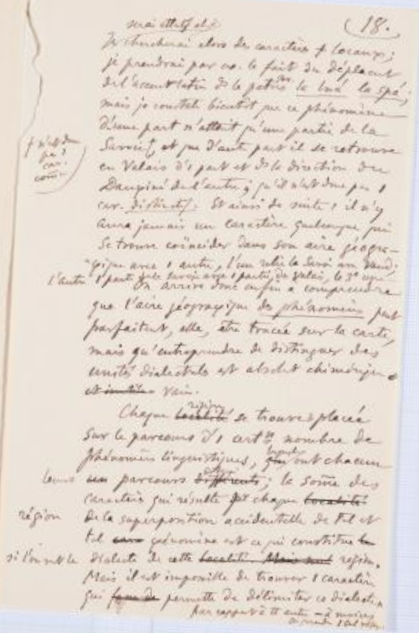 18.
Je chercherai alors des caractères + locaux;
je prendrai par ex. le fait du déplacnt
de l'accent latin ds le patois la lná la spá;
mais je constate bientôt que ce phénomène
d'une part n'atteint qu'une partie de la
Savoie, et que d'autre part il se retrouve
en Valais d'1 part et ds la direction du
Dauphiné de l'autre; qu'il n'est donc pas 1
car. distinctif. Et ainsi de suite: il n'y
aura jamais un caractère quelconque qui
se trouve coïncider dans son aire géogra-
phique avec 1 autre,
l'autre 1 part
On arrive donc enfin à comprendre
que l'aire géographique des phénomènes peut
parfaitent, elle, être tracée sur la carte,
mais qu'entreprendre de distinguer des
unités dialectales est absolt chimérique
et inutile vain.
Chaque localité région se trouve placée
sur le parcours d'1 certn nombre de
phénomènes linguistiques, qui ont chacun
leurs un parcours différents; la somme des
caractères qui résulte pr chaque localité
région de la superposition accidentelle de tel et
tel phénomène est ce qui constitue le
si l'on veut le dialecte de cette localité. Mais région.
Mais il est impossible de trouver 1 caractère
qui permette de délimiter ce dialecte
par rapport à tt autre